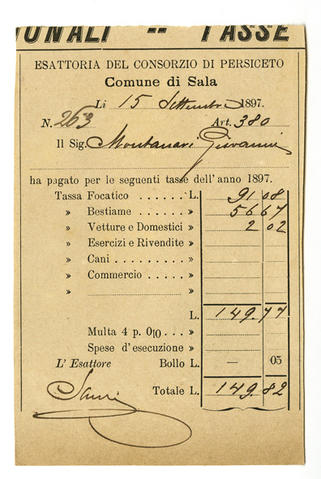 IONALI -- TASSE
ESATTORIA DEL CONSORZIO DI PERSICETO
Comune di Sala
Li 15 Settembre 1897.
N. 263 Art. 380
Il Sig. Montanari Giovanni
ha pagato per le seguenti tasse dell'anno 1897.
Tassa Focatico . . . . . . L. 91 08
» Bestiame . . . . . » 56 67
» Vetture e Domestici » 2 02
» Esercizi e Rivendite »
» Cani . . . . . . . »
» Commercio . . . . . »
» »
L. 149,77
Multa 4 p. 0|0 . . . »
Spese d'esecuzione »
L' Esattore Bollo L. — 05
Totale L. 149.82